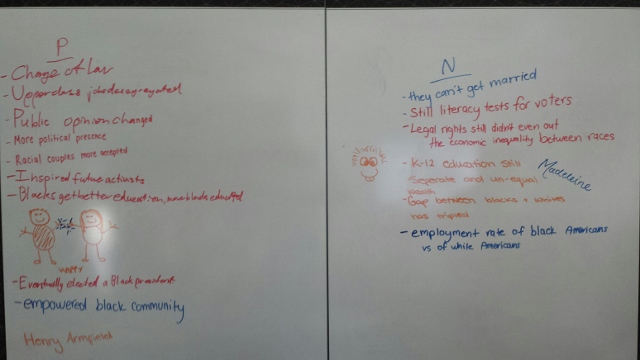 P
- Change of law
- Upperclass jobs desegregated
- Public opinion changed
- More political presence
- Racial couples more accepted
- Inspired future activists
- Blacks get better education, more blacks educated
Happy
- Eventually elected a Black president
- empowered black community
Henry Armfield
N
- they can't get married
- Still literacy tests for voters
- Legal rights still didn't even out
the economic inequality between races
- K-12 Education still
Seperate and un-equal
Madeleine
wealth
- Gap between blacks + whites
has tripled
- employment rate of black Americans
vs of white Americans